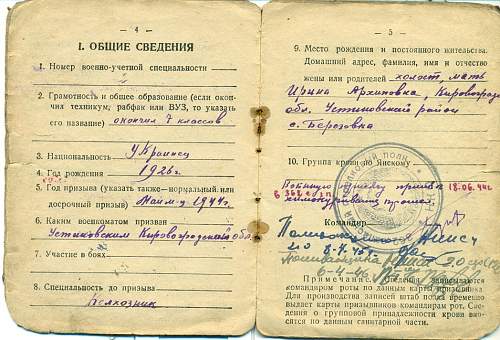 — 4 —
I. ОБЩИЕ СВЕДЕНИЯ
1. Номер военно-учетной специальности
2. Грамотность и общее образование (если окон-
чил техникум, рабфак или ВУЗ, то указать
его название) окончил 7 классов
3. Национальность Украинец
4. Год рождения 1926 г.
5. Год призыва (указать также—нормальный или
досрочный призыв) 1944 г.
6. Каким военкоматом призван
Устиновским Кировоградской обл.
7. Участие в боях
8. Специальность до призыва
Колхозник
— 5 —
9. Место рождения и постоянного жительства.
Домашний адрес, фамилия, имя и отчество
жены или родителей холост, мать
Ирина Архиповка, Кировоградск.
обл. Устиновский район
с. Березовка
10. Группа крови по Янскому
присягу принял 18.06.44г.
прошел
Командир
Примечание. Сведения записываются
командиром роты по данным карты призывника.
Для производства записей штаб полка временно
выдает карты призывников командирам рот. Све-
дения о групповой принадлежности крови вно-
сятся по данным санитарной части.